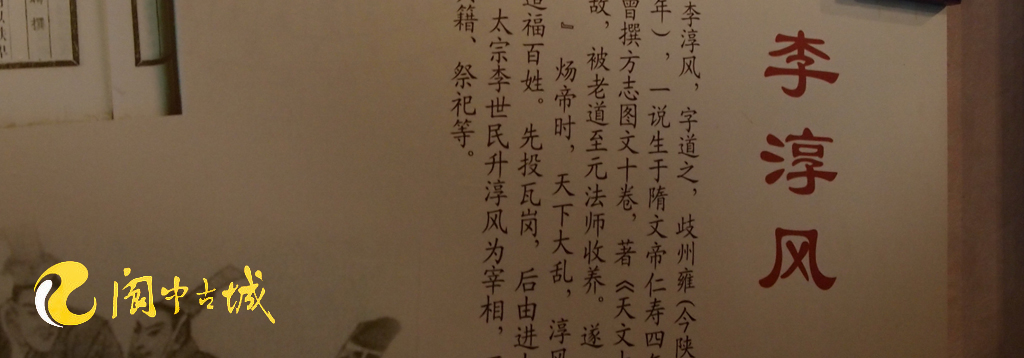 李淳风
李淳风，字道之，歧州雍（今陕
年），一说生于隋文帝仁寿四年
曾撰方志图文十卷，著《天文大
故，被老道至元法师收养。遂
』炀帝时，天下大乱，淳风
造福百姓。先投瓦岗，后由进
太宗李世民升淳风为宰相，
籍、祭祀等。
阆中古城